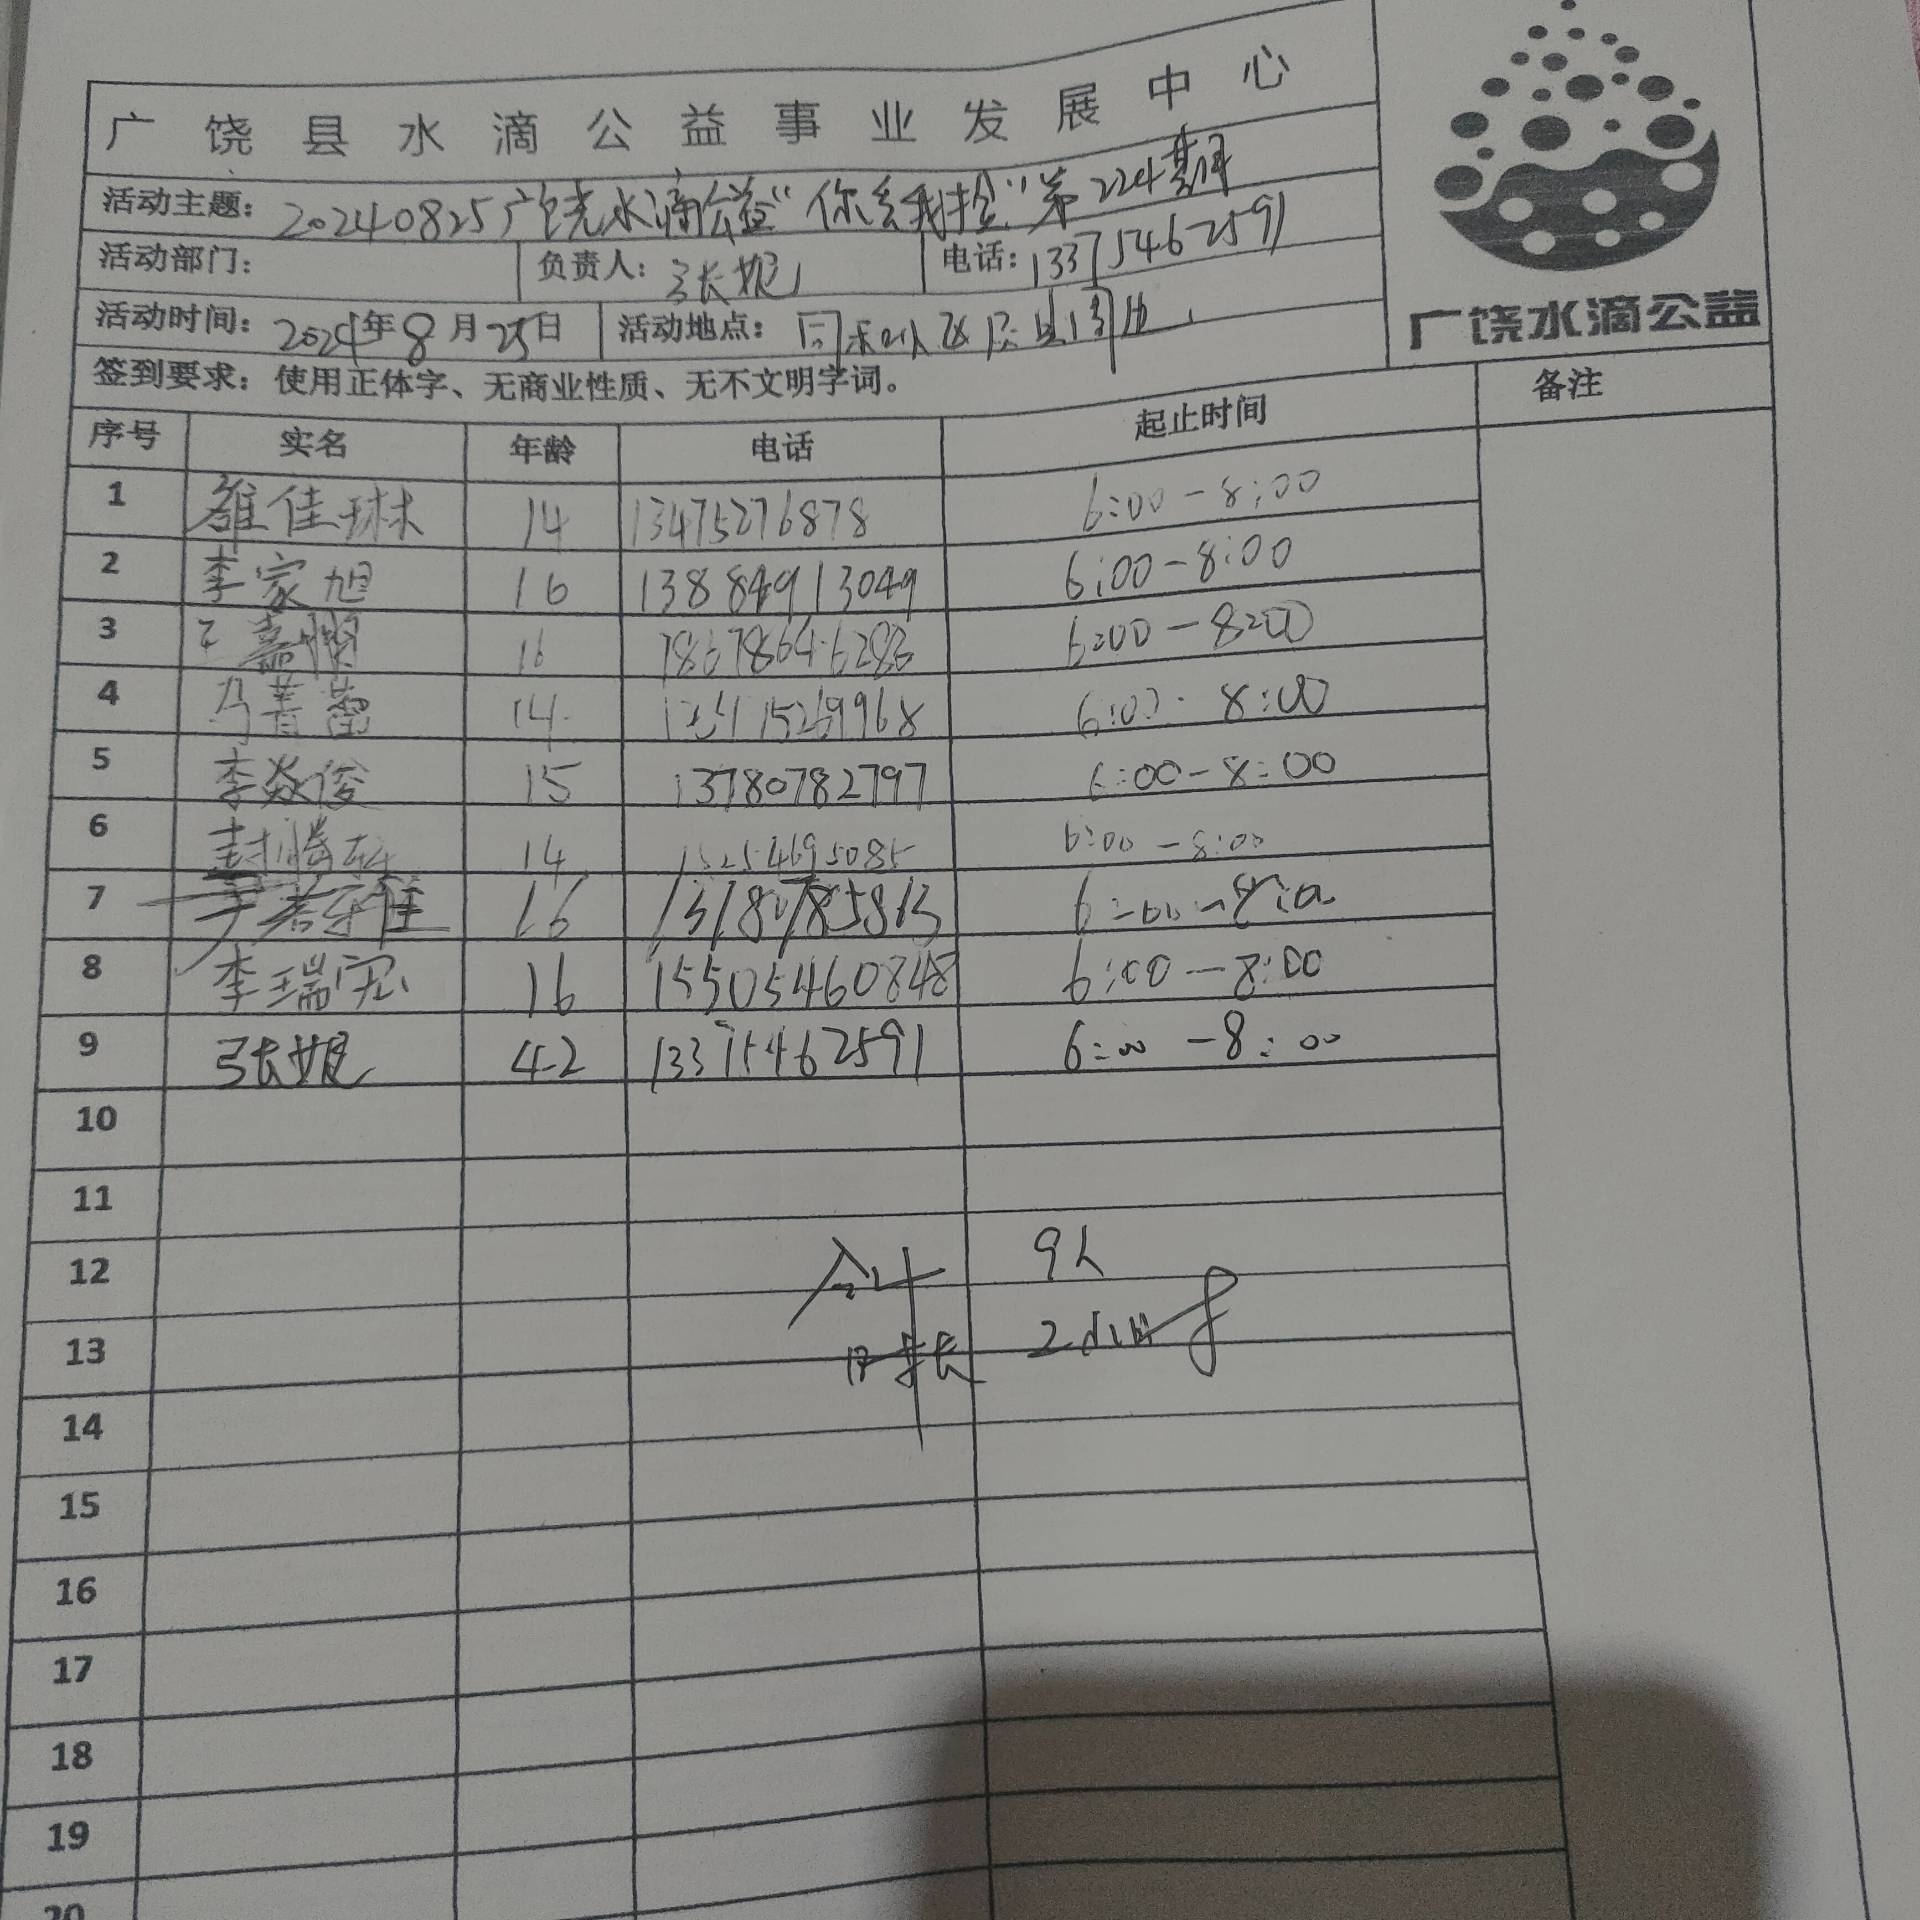 广饶县水滴公益事业发展中心
活动主题：20240825广饶水滴公益“你丢我捡”第224期
活动部门： 负责人：张妮 电话：13375462591
活动时间：2024年8月25日 活动地点：
签到要求：使用正体字、无商业性质、无不文明字词。
广饶水滴公益
序号 实名 年龄 电话 起止时间 备注
1 雒佳琳 14 13475276878 6:00-8:00
2 李家旭 16 13884913049 6:00-8:00
3 16 6:00-8:00
4 14 6:00-8:00
5 李焱俊 15 13780782797 6:00-8:00
6 14 6:00-8:00
7 16 6:00-8:00
8 李瑞宏 16 15505460848 6:00-8:00
9 张妮 42 13375462591 6:00-8:00
10
11
12 合计 9人
13 时长 2小时
14
15
16
17
18
19
20